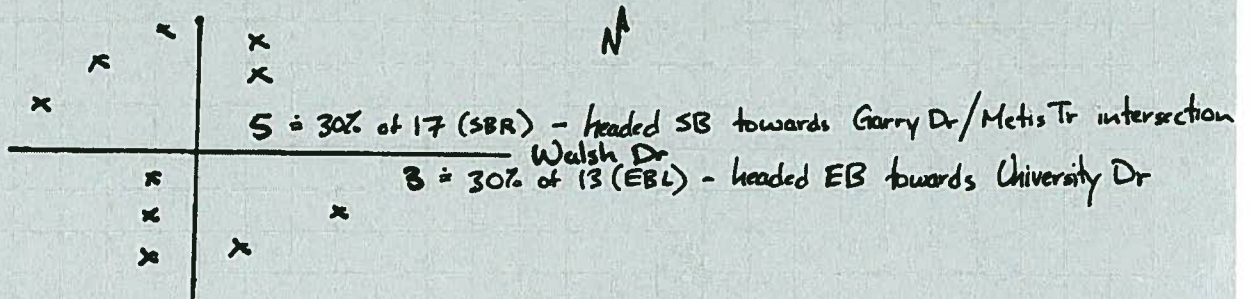 N
5 ≐ 30% of 17 (SBR) - headed SB towards Garry Dr/Metis Tr intersection
Walsh Dr
3 ≐ 30% of 13 (EBL) - headed EB towards University Dr